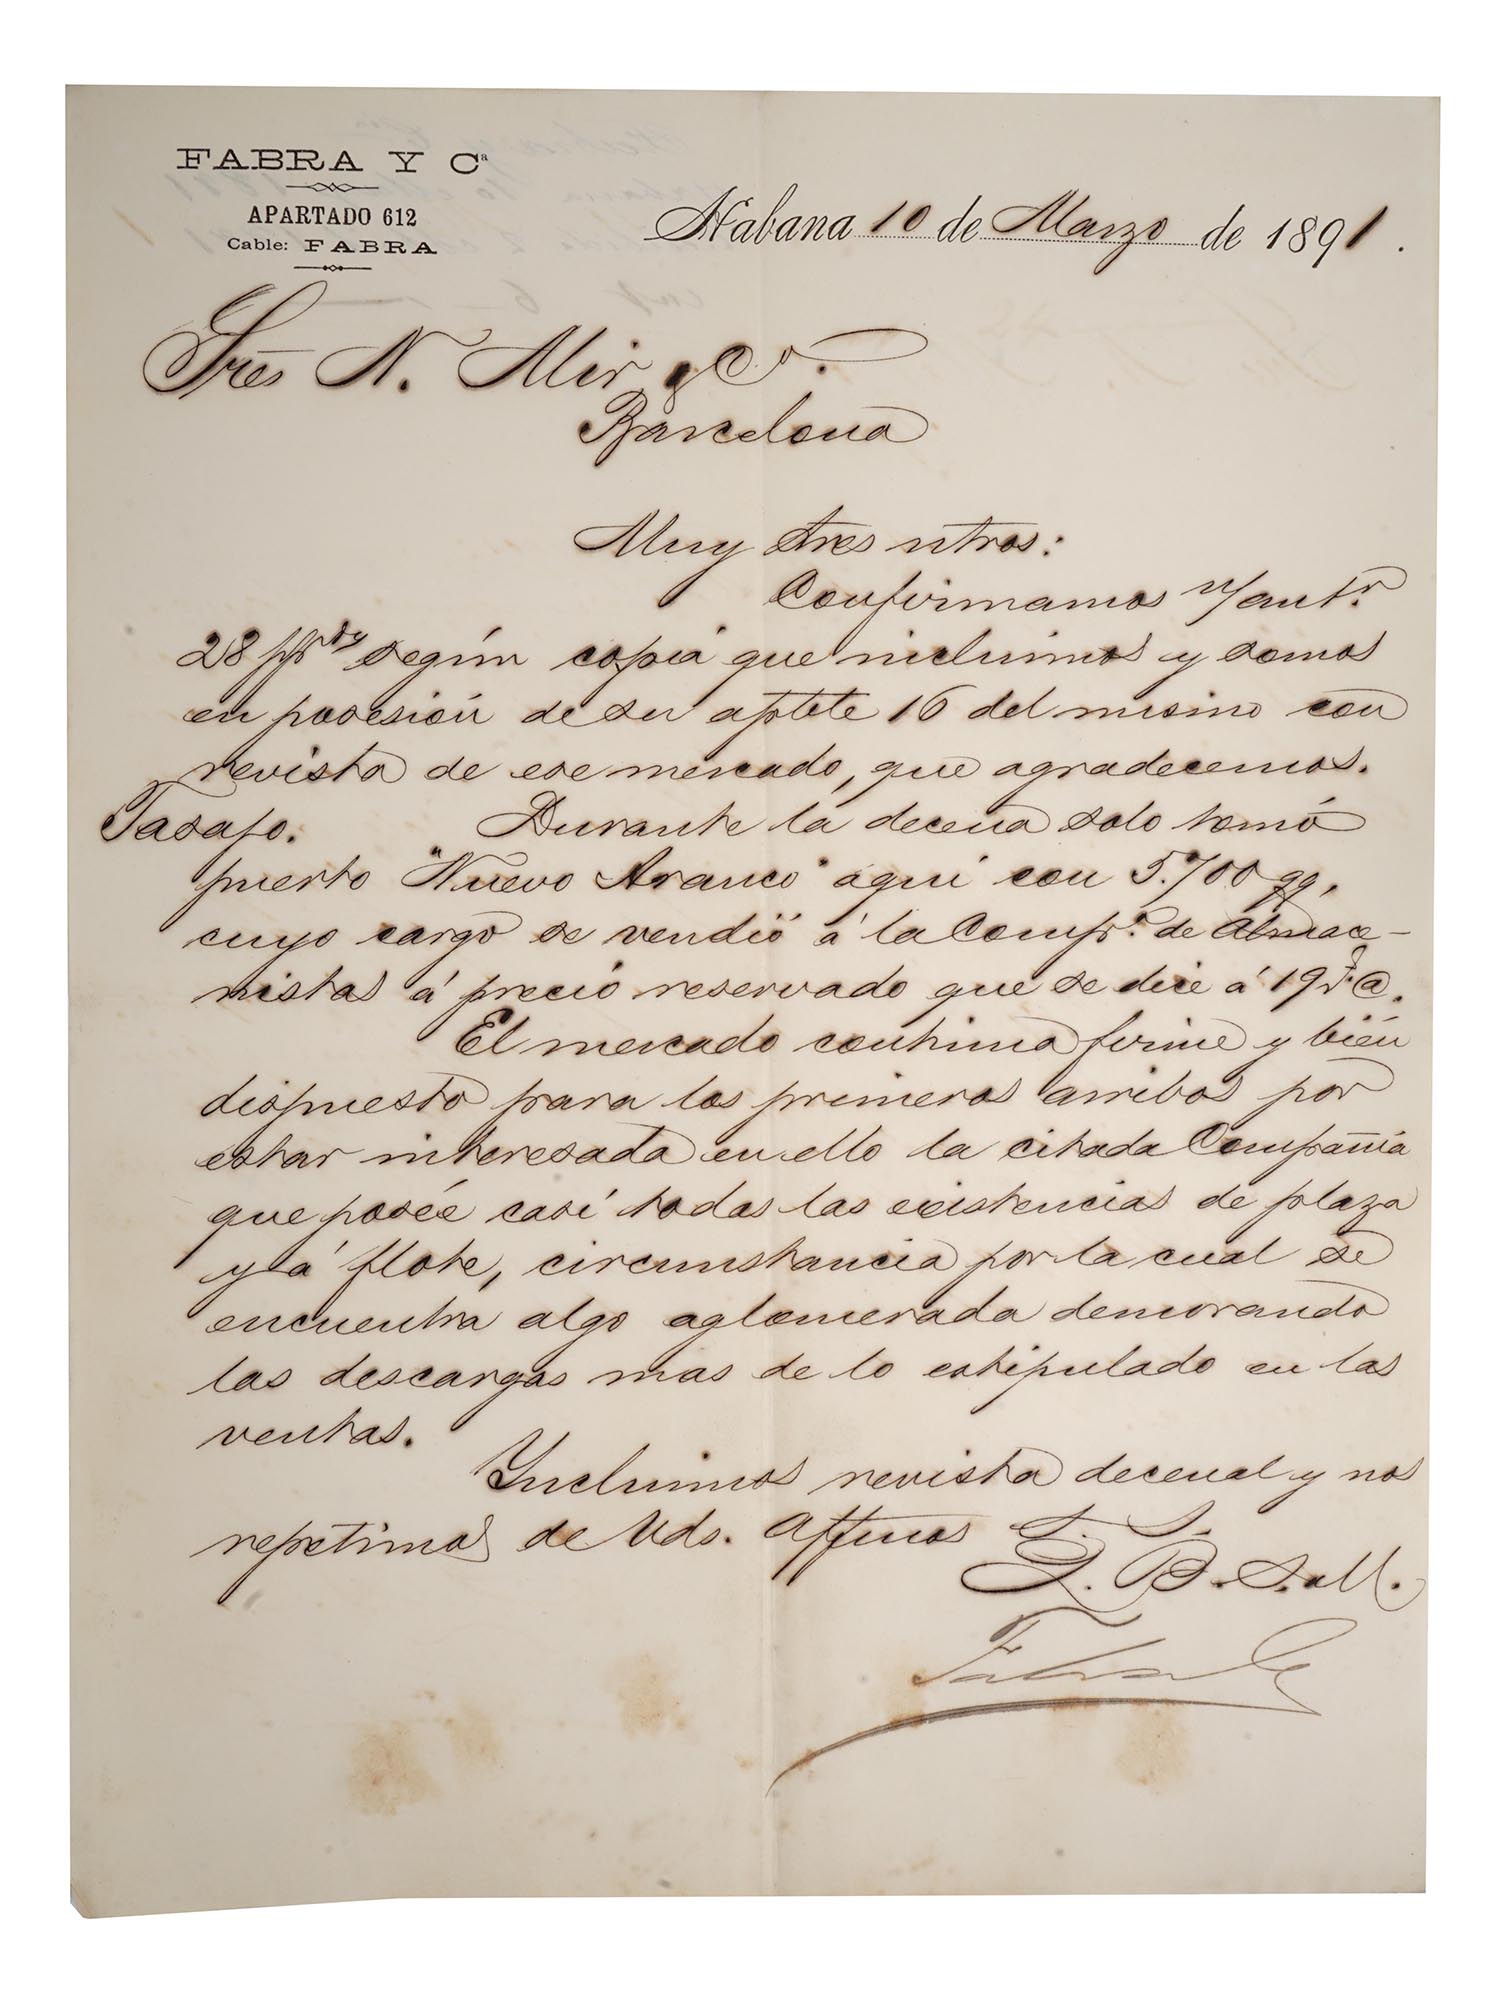 FABRA Y Cª
APARTADO 612
Cable: FABRA
Habana 10 de Marzo de 1891.
Sres N. Mir y Cª.
Barcelona
Muy Sres ntros:
Confirmamos n/antr.
28 ppdo según copia que incluimos y somos
en posesión de su aptete 16 del mismo con
revista de ese mercado, que agradecemos.
Tasajo. Durante la decena solo tomó
puerto "Nuevo Arauco" aquí con 5.700 qq,
cuyo cargo se vendió á la Compª. de Almace-
nistas á precio reservado que se dice á 19 r. @.
El mercado continua firme y bien
dispuesto para los primeros arribos por
estar interesada en ello la citada Compañia
que poseé casi todas las existencias de plaza
y á flote, circunstancia por la cual se
encuentra algo aglomerada demorando
las descargas mas de lo estipulado en las
ventas.
Incluimos revista decenal y nos
repetimos de Vds. affmos S. S.
Q. B. S. M.
Fabra y C